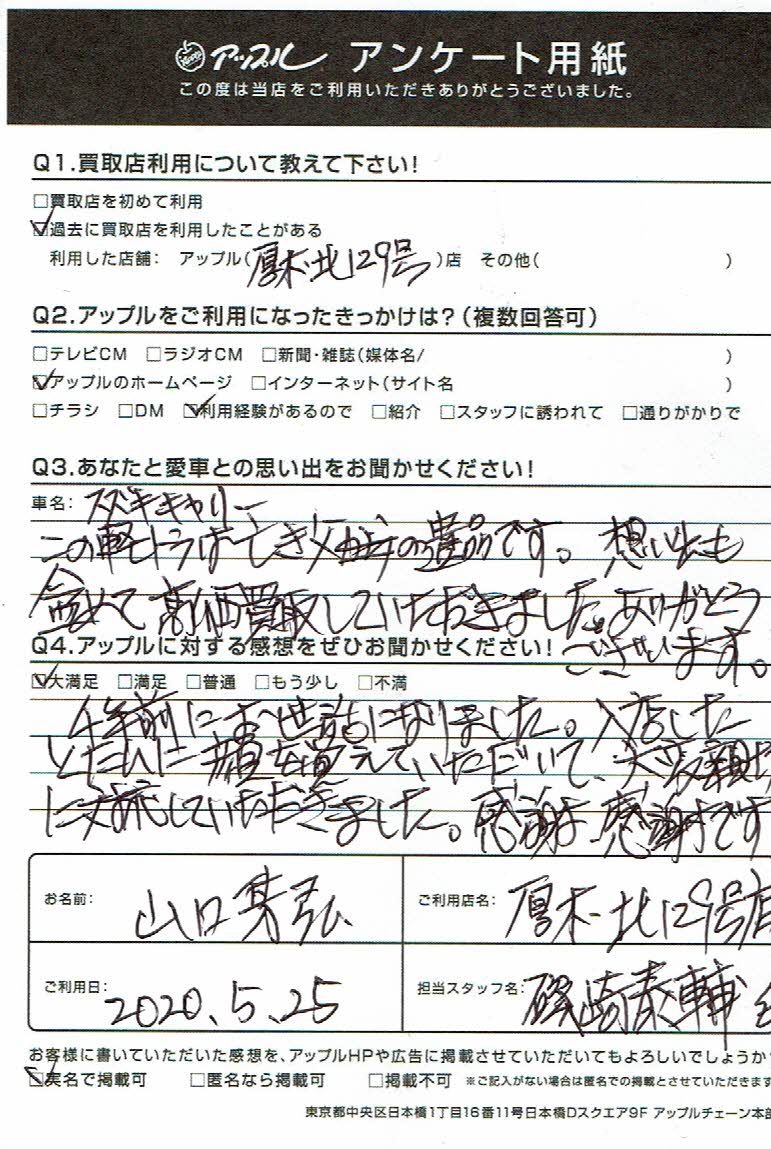 アップル アンケート用紙
この度は当店をご利用いただきありがとうございました。
Q1.買取店利用について教えて下さい!
□買取店を初めて利用
☑過去に買取店を利用したことがある
利用した店舗: アップル(厚木・北129号)店 その他( )
Q2.アップルをご利用になったきっかけは?(複数回答可)
□テレビCM □ラジオCM □新聞・雑誌(媒体名/ )
☑アップルのホームページ □インターネット(サイト名 )
□チラシ □DM ☑利用経験があるので □紹介 □スタッフに誘われて □通りがかりで
Q3.あなたと愛車との思い出をお聞かせください!
車名: スズキキャリー
この軽トラは亡き父の遺品です。想い出も
含めて高価買取していただきました。ありがとう
ございます。
Q4.アップルに対する感想をぜひお聞かせください!
☑大満足 □満足 □普通 □もう少し □不満
4年前にお世話になりました。入店した
とたんに顔を覚えていただいて、大変親切
に対応していただきました。感謝感謝です
お名前: 山口 弘
ご利用店名: 厚木・北129号店
ご利用日: 2020.5.25
担当スタッフ名: 篠崎泰輔
お客様に書いていただいた感想を、アップルHPや広告に掲載させていただいてもよろしいでしょうか?
☑実名で掲載可 □匿名なら掲載可 □掲載不可 ※ご記入がない場合は匿名での掲載とさせていただきます
東京都中央区日本橋1丁目16番11号日本橋Dスクエア9F アップルチェーン本部